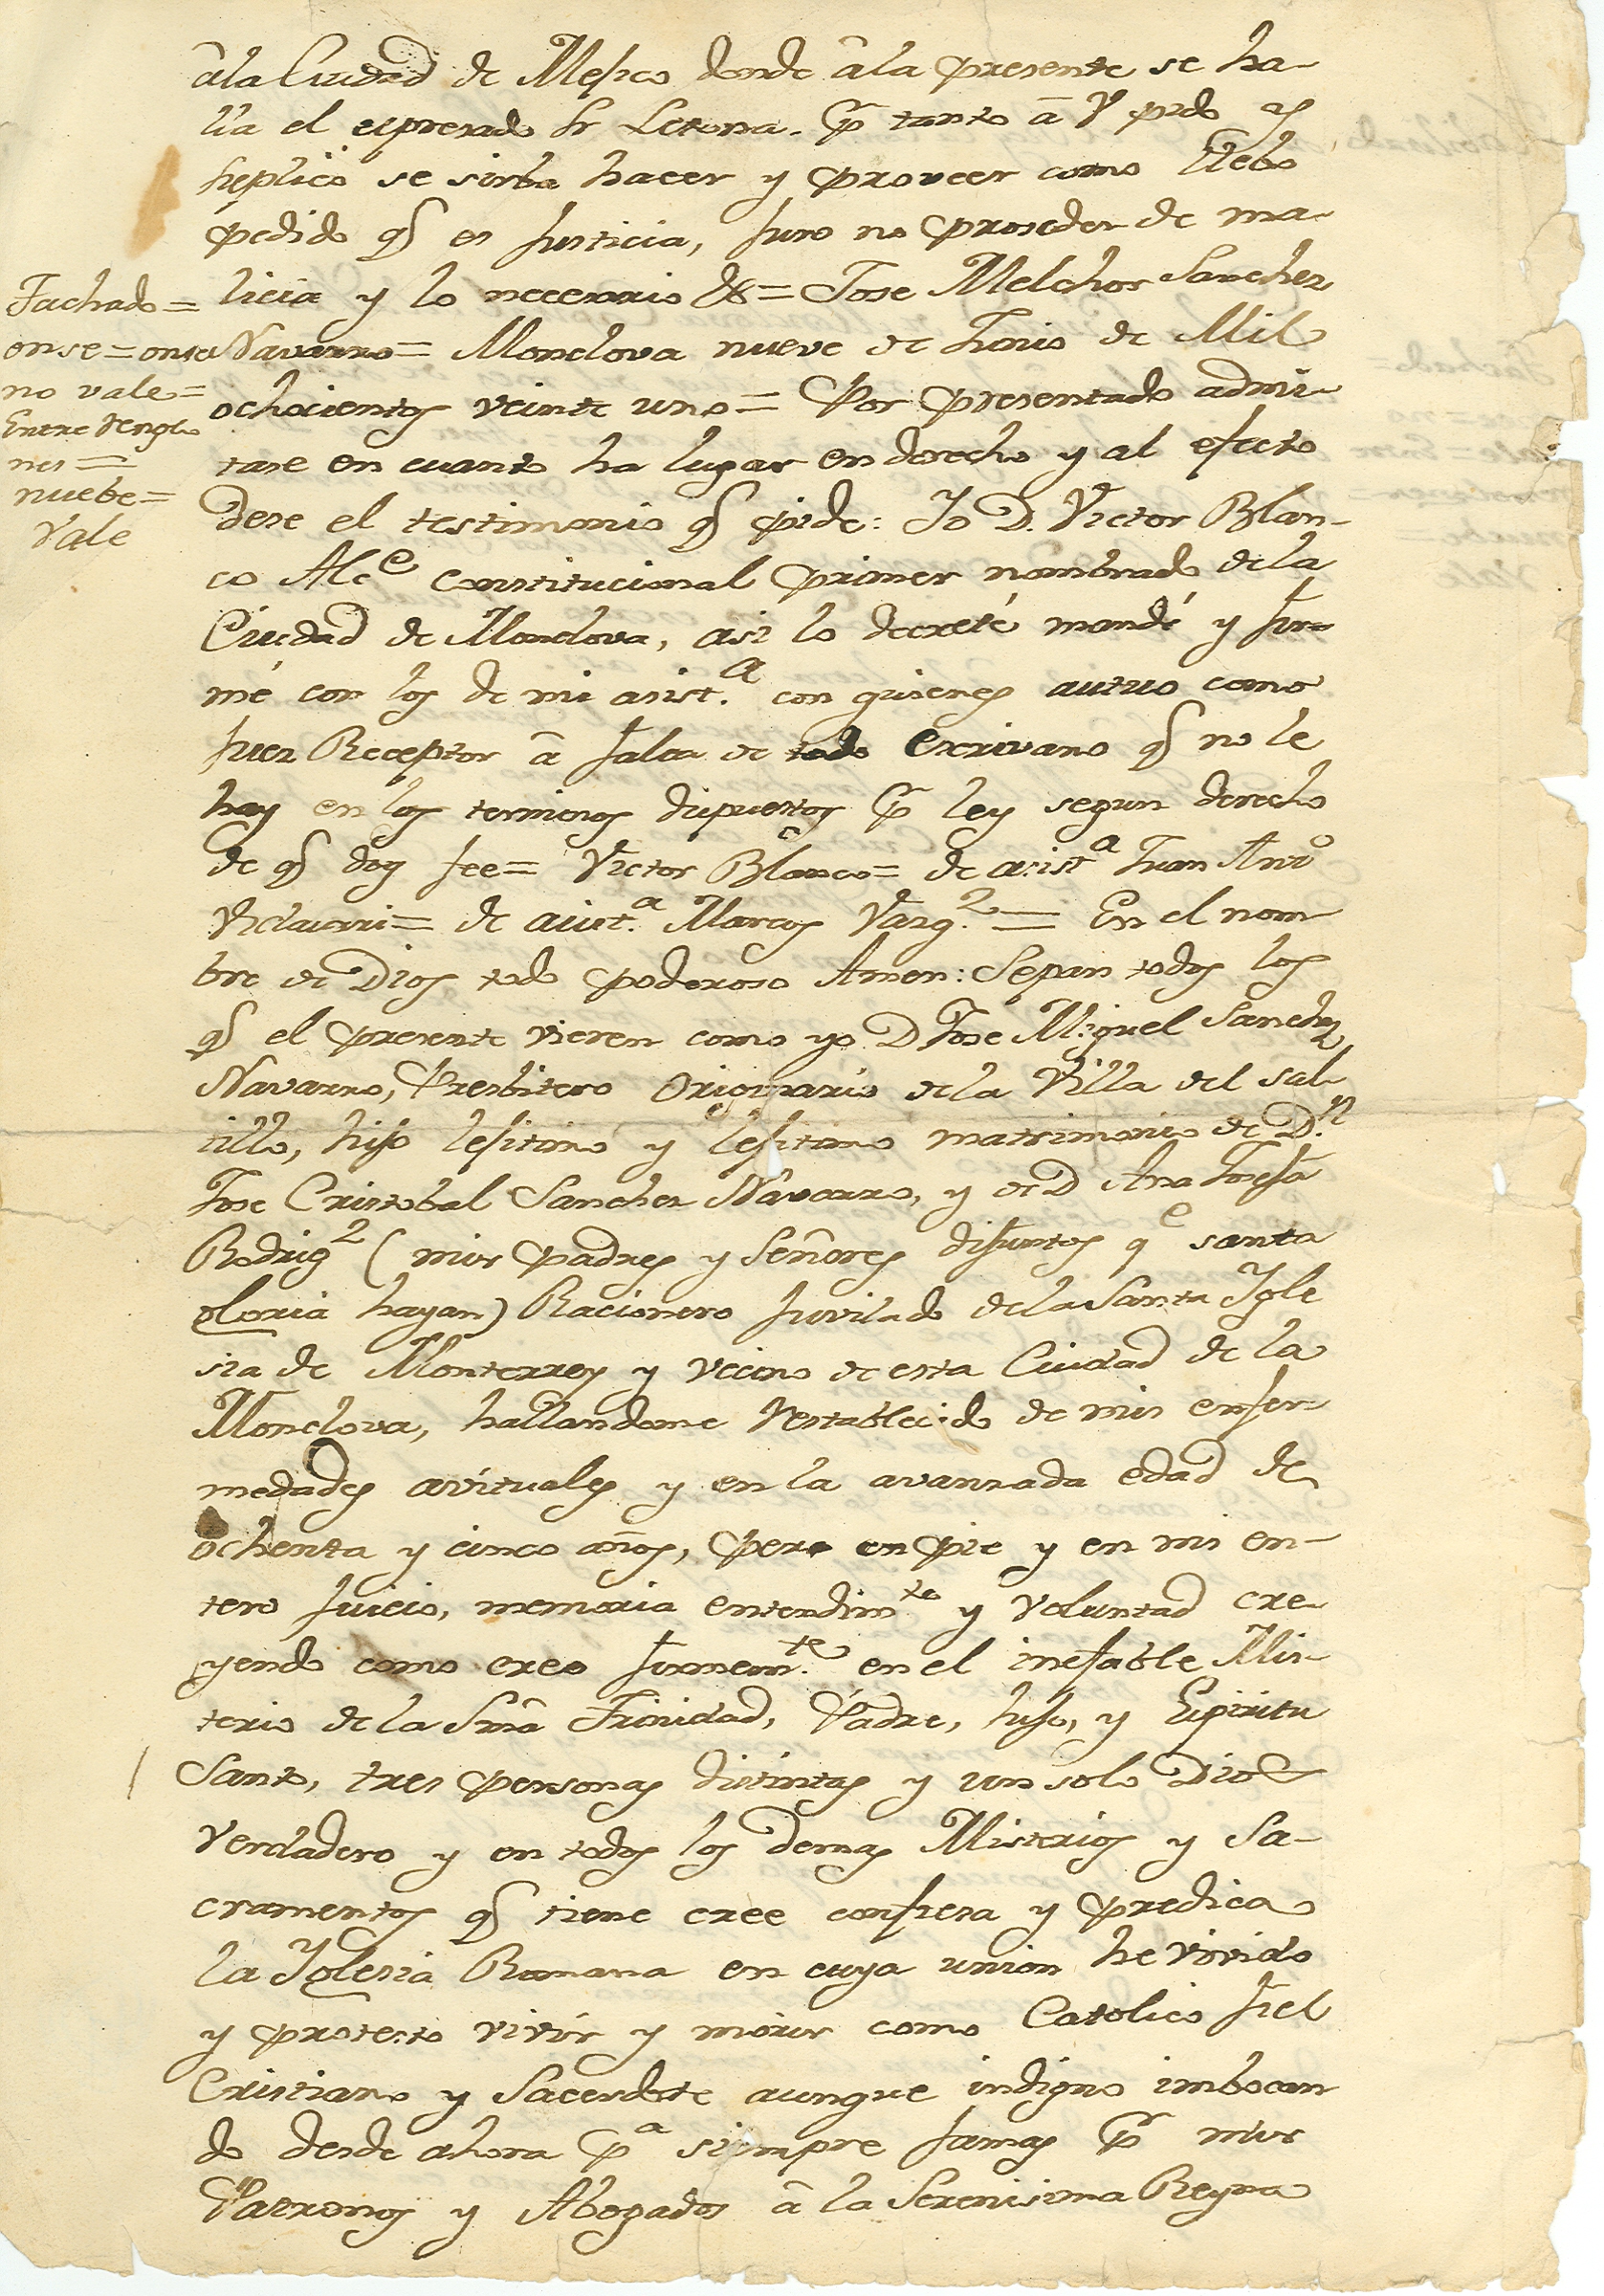 âla Ciudad de Mejico donde âla presente se ha-
lla el espresado Sr Letona. Pr tanto â V pido y
suplico se sirba hacer y proveer como llebo
pedido qe es Justicia, Juro no proseder de ma-
licia y lo necesario &= Jose Melchor Sanchez
Navarro= Monclova nueve de Junio de Mil
ochocientos veinte uno= Por presentado admi-
tase en cuanto ha lugar en derecho y al efecto
dese el testimonio qe pide: Yo D. Victor Blan-
co Alce constitucional primer nombrado de la
Ciudad de Monclova, asi lo decreté mandé y fir-
mé con los de mi asist.a con quienes autuo como
Juez Receptor â falta de todo Escrivano qe no le
hay en los terminos dispuestos pr ley segun derecho
de qe doy fee= Victor Blanco= de asista Juan Anto
Vidaurri= de asist.a Marcos Varg.z= En el nom
bre de Dios todo poderoso Amen: Sepan todos los
qe el presente vieren como yo D Jose Miguel Sanchez
Navarro, Presbitero Originario de la Villa del Sal-
tillo, hijo lejitimo y lejitimo matrimonio de D.n
Jose Cristobal Sanchez Navarro, y de D Ana Josefa
Rodrigz (mis padres y Señores difuntos qe santa
gloria hayan) Racionero Juvilado de la Santa Ygle
sia de Monterrey y vecino de esta Ciudad de la
Monclova, hallandome restablecido de mis enfer
medades avituales y en la avanzada edad de
ochenta y cinco años, pero en pie y en mi en-
tero Juicio, memoria entendimto y voluntad cre-
yendo como creo firmem.te en el inefable Mis-
terio de la Sma Trinidad, Padre, hijo, y Espiritu
Santo, tres personas distintas y un solo Dios
verdadero y en todos los demas Misterios y Sa-
cramentos qe tiene cree confiesa y predica
la Yglesia Romana en cuya union he vivido
y protesto vivir y morir como Catolico fiel
Cristiano y Sacerdote aunque indigno imbocan
do desde ahora pa siempre Jamas pr mis
Patronos y Abogados â la Serenisima Reyna
Tachado=
onse=onse
no vale=
Entre renglo
nes=
nuebe=
Vale